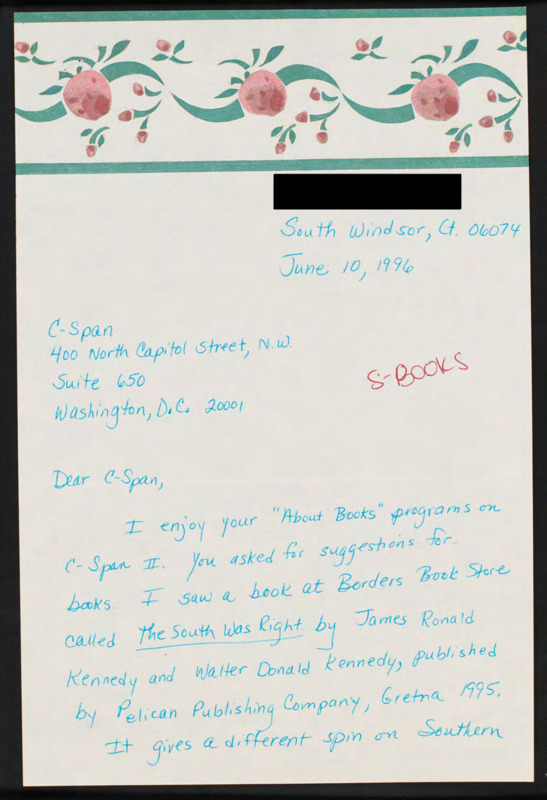 South Windsor, Ct. 06074
June 10, 1996
C-Span
400 North Capitol Street, N.W.
Suite 650
Washington, D.C. 20001
S-BOOKS
Dear C-Span,
I enjoy your "About Books" programs on
C-Span II. You asked for suggestions for
books. I saw a book at Borders Book Store
called The South Was Right by James Ronald
Kennedy and Walter Donald Kennedy, published
by Pelican Publishing Company, Gretna 1995.
It gives a different spin on Southern